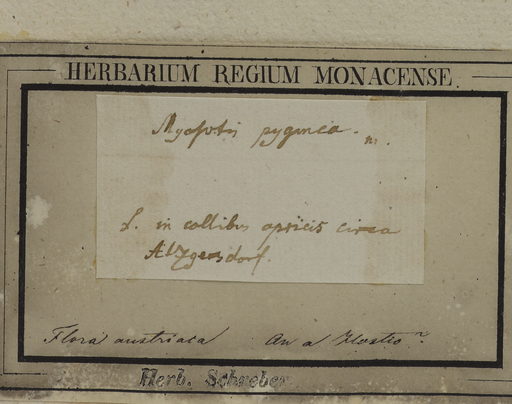 HERBARIUM REGIUM MONACENSE.
Myosotis pygmea. n.
L. in collibus apricis circa
Atzgersdorf.
Flora austriaca An a Hostio?
Herb. Schreber